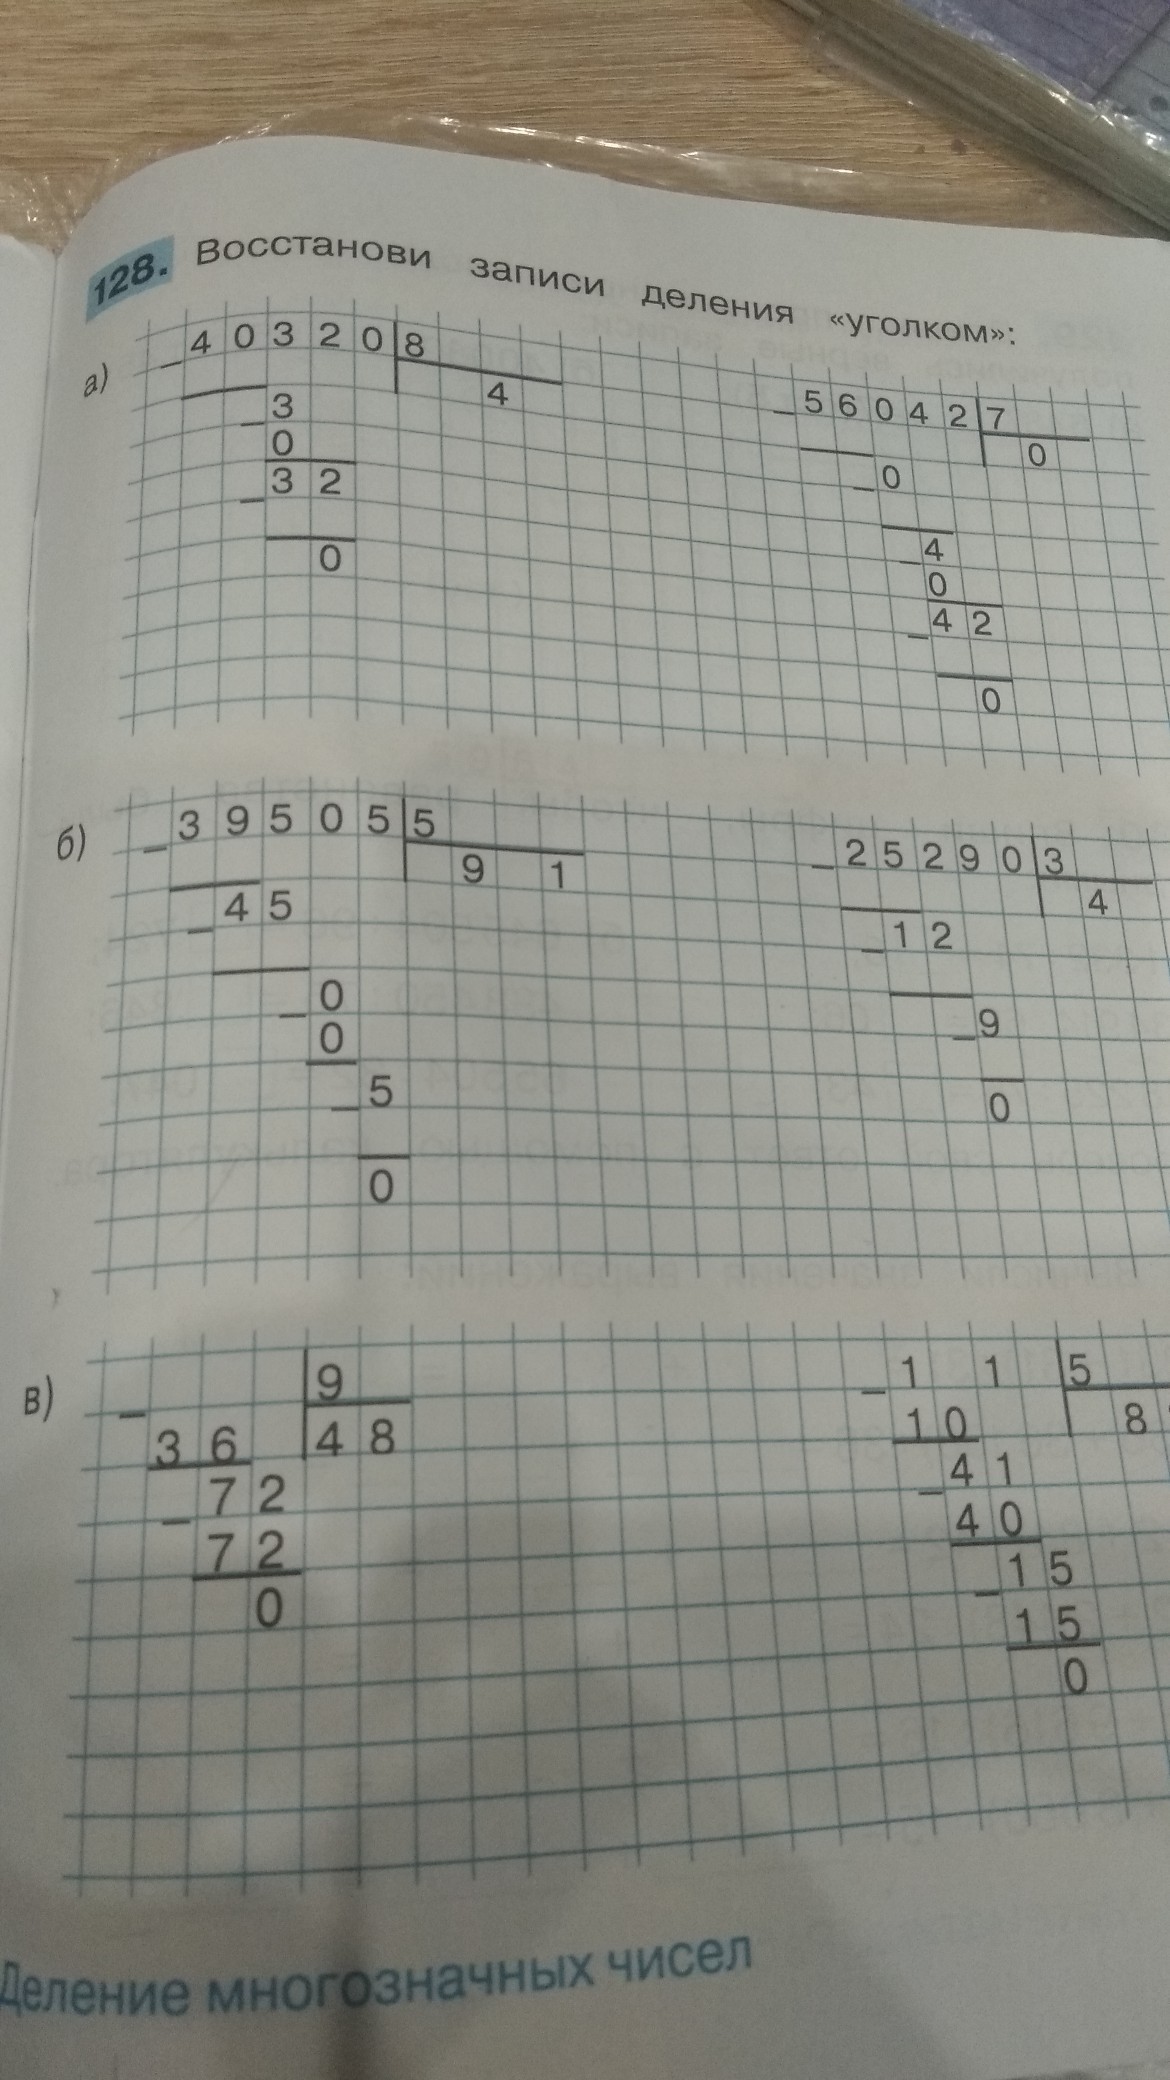 128. Восстанови записи деления «уголком»:
а)
4 0 3 2 0 8
4
3
0
3 2
0
5 6 0 4 2 7
0
0
4
0
4 2
0
б)
3 9 5 0 5 5
9 1
4 5
0
0
5
0
2 5 2 9 0 3
4
1 2
9
0
в)
9
3 6 4 8
7 2
7 2
0
1 1 5
1 0 8
4 1
4 0
1 5
1 5
0
Деление многозначных чисел